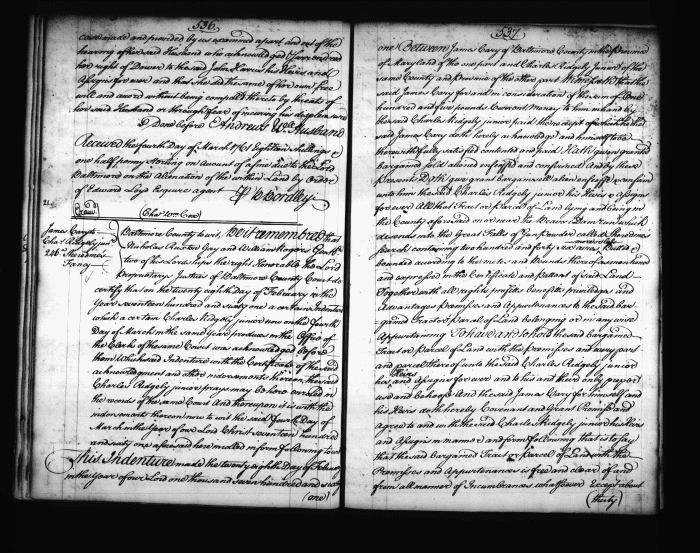 536
coverdure and provided by us examined apart and out of the
hearing of her said Husband who acknowledged & surrendered
her right of Dower to the said John Harris his Heirs and
Assigns for ever and that she did the same of her own free
will and accord without being compelled thereto by threats of
her said Husband or through fear of incuring his displeasure
Done before Andrew Wm Husband
Received the fourth Day of March 1761 Eighteen shillings &
one half penny sterling on account of a fine due to the Lord
Baltimore on the alienation of the within Land by Order
of Edward Loyd Esquire agent W Bordley
Exam'd (Chas Wm Cox)
James Carys to
Chas Ridgely junr
246 as Meredith's
Fancy
Baltimore County to wit, be it remembred that
Nicholas Ruxton Gay and William Rogers Gentn
two of his Lordships the right Honorable the Lord
Proprietary Justices of Baltimore County Court do
certify that on the twenty eighth day of February in the
Year seventeen hundred and sixty one a certain Indenture
which a certain Charles Ridgely junior now on the Fourth
Day of March in the same Year produces in the Office of
the Clerk of the same Court was acknowledged before
them Which said Indenture with the Certificate of the said
acknowledgment and other indorsements thereon, the said
Charles Ridgely junior prays may be here enroled in
the records of the same Court And thereupon it is with the
indorsements thereon now to wit the said fourth Day of
March in the Year of our Lord Christ seventeen hundred
and sixty one aforesaid here inrolled in form following to wit
This Indenture made the twenty eighth Day of February
in the Year of our Lord one thousand seven hundred and sixty
(one)
537
one Between James Cary of Baltimore County in the Province
of Maryland of the one part and Charles Ridgely Junior of the
same County and Province of the other part Witnesseth that the
said James Cary for and in consideration of the sum of One
Hundred and five pounds Current Money to him in hand by
the said Charles Ridgely junior paid the receipt of which he the
said James Cary doth hereby acknowledge and himself to be
therewith fully satisfied contented and paid Hath given granted
bargained sold aliened enfeoffed and confirmed And by these
Presents Doth give grant bargain sell alien enfeoff & confirm
unto him the said Charles Ridgely junior his Heirs & Assigns
for ever All that Tract or Parcel of Land lying and being in
the County aforesaid on or near the Beaver Dam run which
descends into the Great Falls of Gunpowder called
parcel containing two hundred and forty six acres situated &
bounded according to the metes and Bounds thereof as mentioned
and expressed in the Certificate and Pattent of said Land
Together with all rights profits benefits priviledges and
advantages Premises and Appurtenances to the said bar-
gained Tract or Parcel of Land belonging or in any wise
Appertaining To have and to hold the said bargained
Tract or Parcel of Land with the Premises and every part
and parcel thereof unto the said Charles Ridgely junior
Heirs
his and Assigns for ever and to his and their only proper
use and behoof And the said James Cary for himself and
his Heirs doth hereby Covenant and Grant Promise and
agree to and with the said Charles Ridgely junior his Heirs
and Assigns in manner and form following that is to say
that the said bargained Tract or Parcel of Land with the
Premises and Appurtenances is free and clear of and
from all manner of Incumbrances whatsoever Except about
(thirty)